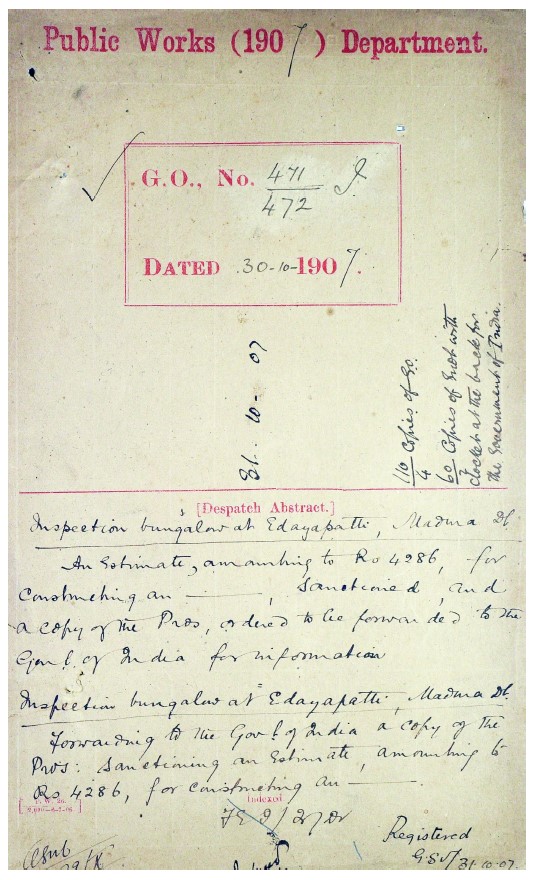 Public Works (1907) Department.
G.O., No. 471 I
472
DATED 30-10-1907.
31. 10- 07
110 Copies of G.O.
4
60 Copies of encl with
docket at the back for
the Government of India.
[Despatch Abstract.]
Inspection bungalow at Edayapatti, Madura Dt.
An Estimate, amounting to Rs 4286, for
Constructing an ———, Sanctioned, and
a copy of the Pros, ordered to be forwarded to the
Govt. of India for information
Inspection bungalow at Edayapatti, Madura Dt.
Forwarding to the Govt. of India a copy of the
Pros: Sanctioning an Estimate, amounting to
Rs 4286, for constructing an ———
Indexof
Registered
31-10-07.